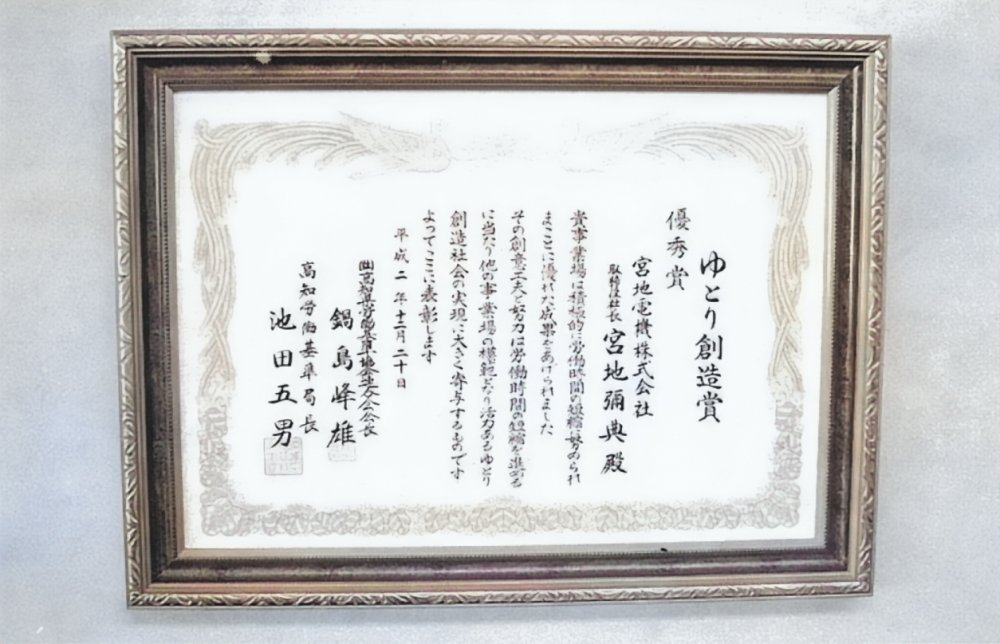 ゆとり創造賞
優秀賞
宮地電機株式会社
取締役社長 宮地彌典殿
貴事業場は積極的に労働時間の短縮に努められ
まことに優れた成果をあげられました
その創意工夫と努力は労働時間の短縮を進める
に当たり他の事業場の模範となり活力あるゆとり
創造社会の実現に大きく寄与するものです
よってここに表彰します
平成二年十二月二十日
鍋島峰雄
高知労働基準局長
池田五男